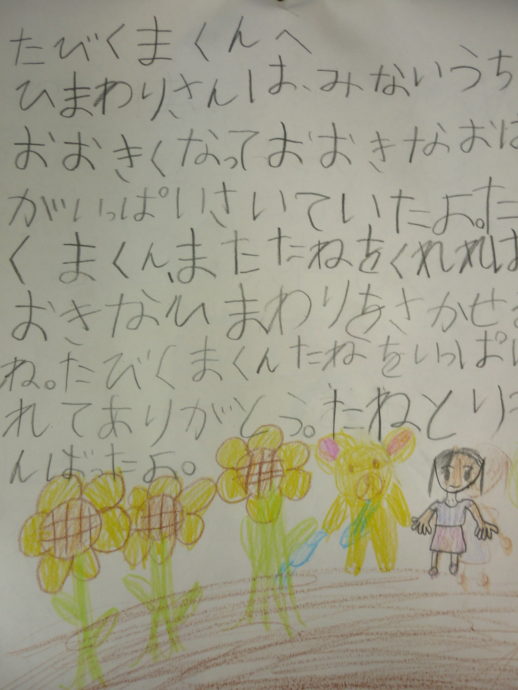 たびくまくんへ
ひまわりさんは、みないうち
おおきくなっておおきなおは
がいっぱいさいていたよ。た
くまくん、またたねをくれれば
おきなひまわりをさかせ
ね。たびくまくんたねをいっぱい
れてありがとう。たねとり
んばったよ。